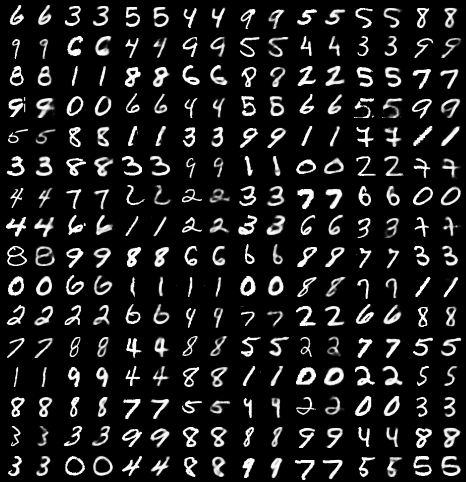 6 6 3 3 5 5 4 4 9 9 5 5 5 5 8 8
9 9 6 6 4 4 9 9 5 5 4 4 3 3 9 9
8 8 1 1 8 8 6 6 8 8 2 2 5 5 7 7
9 9 0 0 6 6 4 4 5 5 6 6 5 5 9 9
5 5 8 8 1 1 3 3 9 9 1 1 7 7 1 1
3 3 8 8 3 3 9 9 1 1 0 0 2 2 7 7
4 4 7 7 2 2 2 2 3 3 7 7 6 6 0 0
4 4 6 6 1 1 2 2 3 3 6 6 3 3 7 7
8 8 9 9 8 8 6 6 6 6 8 8 7 7 3 3
0 0 6 6 1 1 1 1 0 0 8 8 7 7 1 1
2 2 2 2 6 6 9 9 7 7 2 2 6 6 8 8
7 7 8 8 4 4 8 8 5 5 2 2 7 7 5 5
1 1 9 9 4 4 8 8 1 1 0 0 2 2 5 5
8 8 8 8 7 7 5 5 4 4 2 2 0 0 3 3
3 3 3 3 9 9 8 8 8 8 9 9 4 4 8 8
3 3 0 0 4 4 8 8 9 9 7 7 5 5 5 5